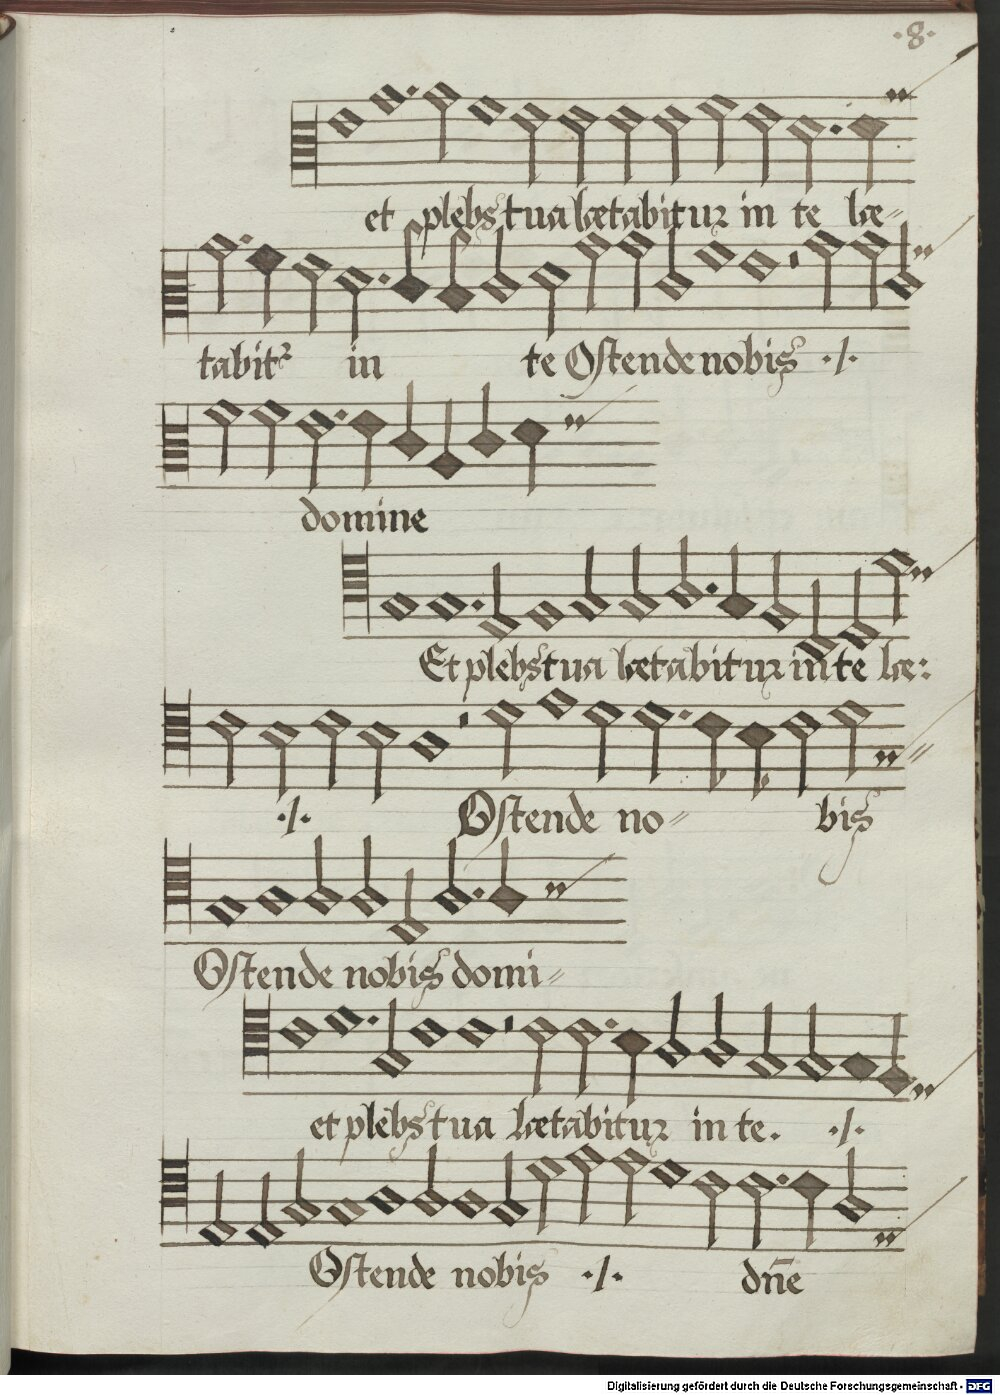 ·8·
et plebs tua lætabitur in te læ-
tabitr in te Ostende nobis ·/·
domine
Et plebs tua lætabitur in te læ:
·/· Ostende no- bis
Ostende nobis domi-
et plebs tua lætabitur in te. ·/·
Ostende nobis ·/· dn̄e
Digitalisierung gefördert durch die Deutsche Forschungsgemeinschaft - DFG